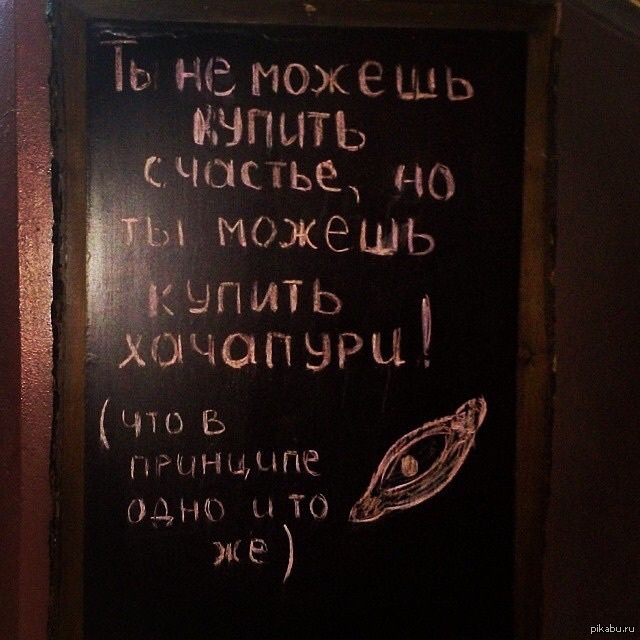 Ты не можешь
купить
счастье, но
ты можешь
купить
хачапури!
(что в
принципе
одно и то
же)
pikabu.ru